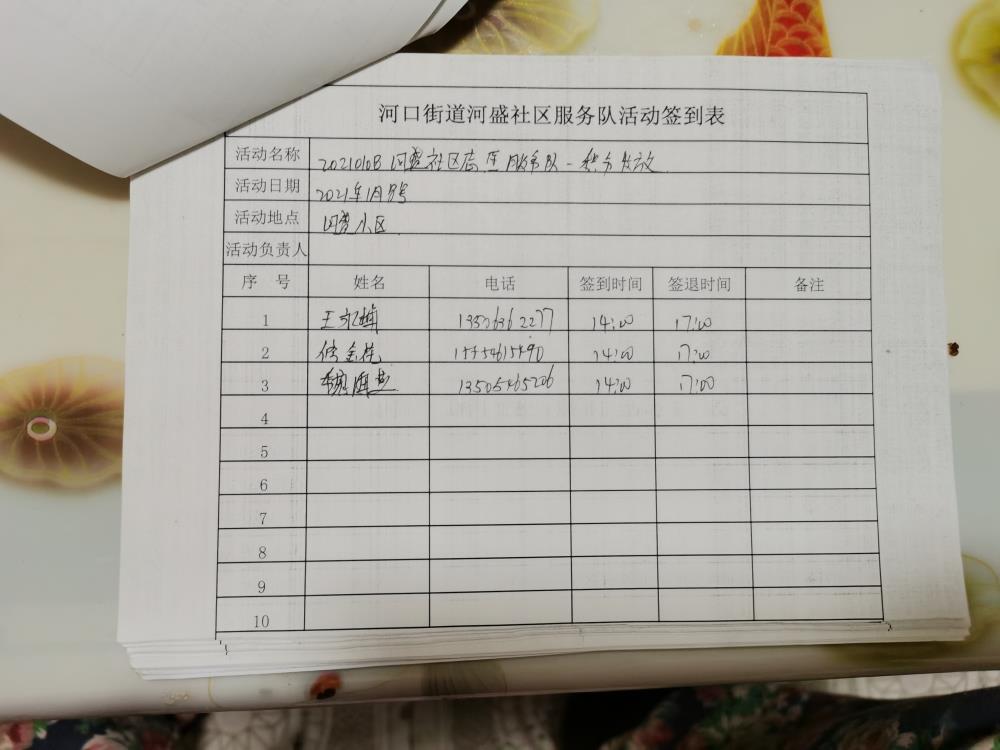 河口街道河盛社区服务队活动签到表
活动名称 20210108 河盛社区志愿服务队-积分发放
活动日期 2021年1月8号
活动地点 河盛小区
活动负责人
序 号 姓名 电话 签到时间 签退时间 备注
1 王 13506362277 14:00 17:00
2 15554615590 14:00 17:00
3 13505465206 14:00 17:00
4
5
6
7
8
9
10